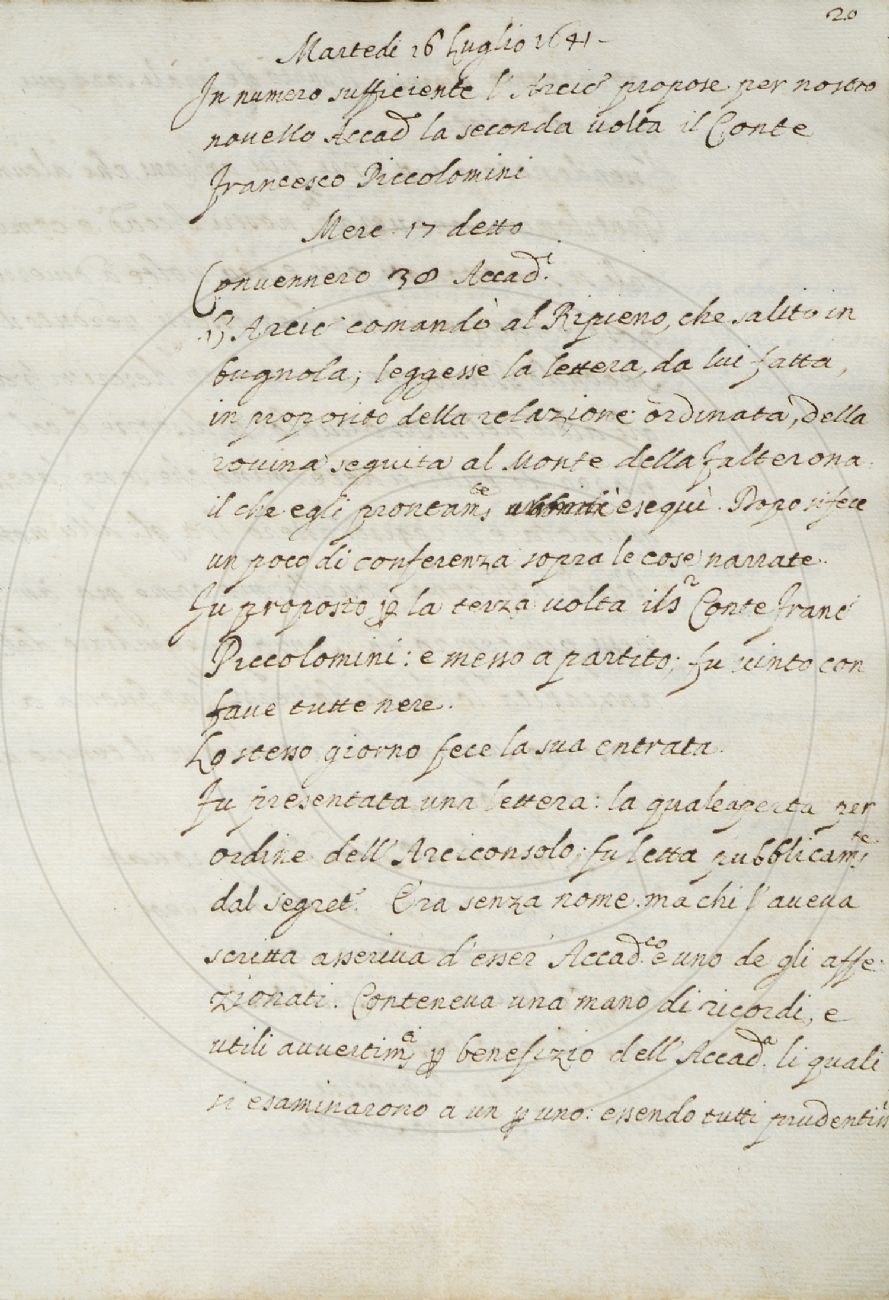 20
Martedi 16 Luglio 1641 -
In numero sufficiente l'Arcic.° propose per nostro
novello Accad.° la seconda volta il Conte
Francesco Piccolomini
Merc. 17 detto
Convennero 38 Accad.ci
L'Arcic.° comandò al Ripieno, che salito in
bugnola, leggesse la lettera, da lui fatta,
in proposito della relazione ordinata, della
rovina seguita al Monte della Falterona.
il che egli prontam.te eseguì. Dopo si fece
un poco di conferenza sopra le cose narrate.
Fu proposto p la terza volta il S.r Conte Franc.°
Piccolomini: e messo a partito; fu vinto con
fave tutte nere.
Lo stesso giorno fece la sua entrata.
Fu presentata una lettera: la quale aperta per
ordine dell'Arciconsolo; fu letta pubblicam.te
dal segret.° Era senza nome. ma chi l'aveva
scritta asseriva d'esser Accad.co e uno de gli affe-
zionati. Conteneva una mano di ricordi, e
utili avvertim.ti p benefizio dell'Accad.a li quali
si esaminarono a un p uno: essendo tutti prudentiss.